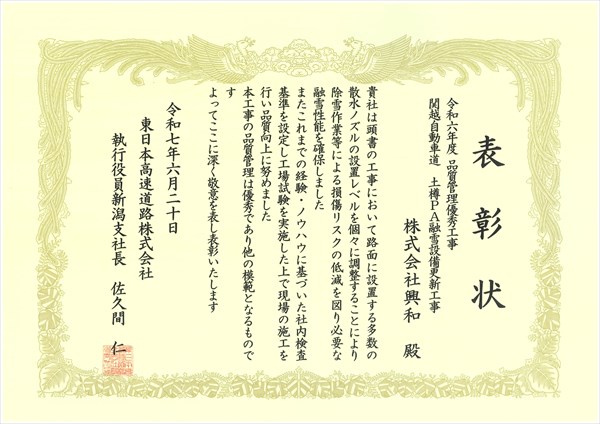 表彰状
令和六年度 品質管理優秀工事
関越自動車道 土樽PA融雪設備更新工事
株式会社興和 殿
貴社は頭書の工事において路面に設置する多数の
散水ノズルの設置レベルを個々に調整することにより
除雪作業等による損傷リスクの低減を図り必要な
融雪性能を確保しました
またこれまでの経験・ノウハウに基づいた社内検査
基準を設定し工場試験を実施した上で現場の施工を
行い品質向上に努めました
本工事の品質管理は優秀であり他の模範となるもので
す
よってここに深く敬意を表し表彰いたします
令和七年六月二十日
東日本高速道路株式会社
執行役員新潟支社長 佐久間 仁